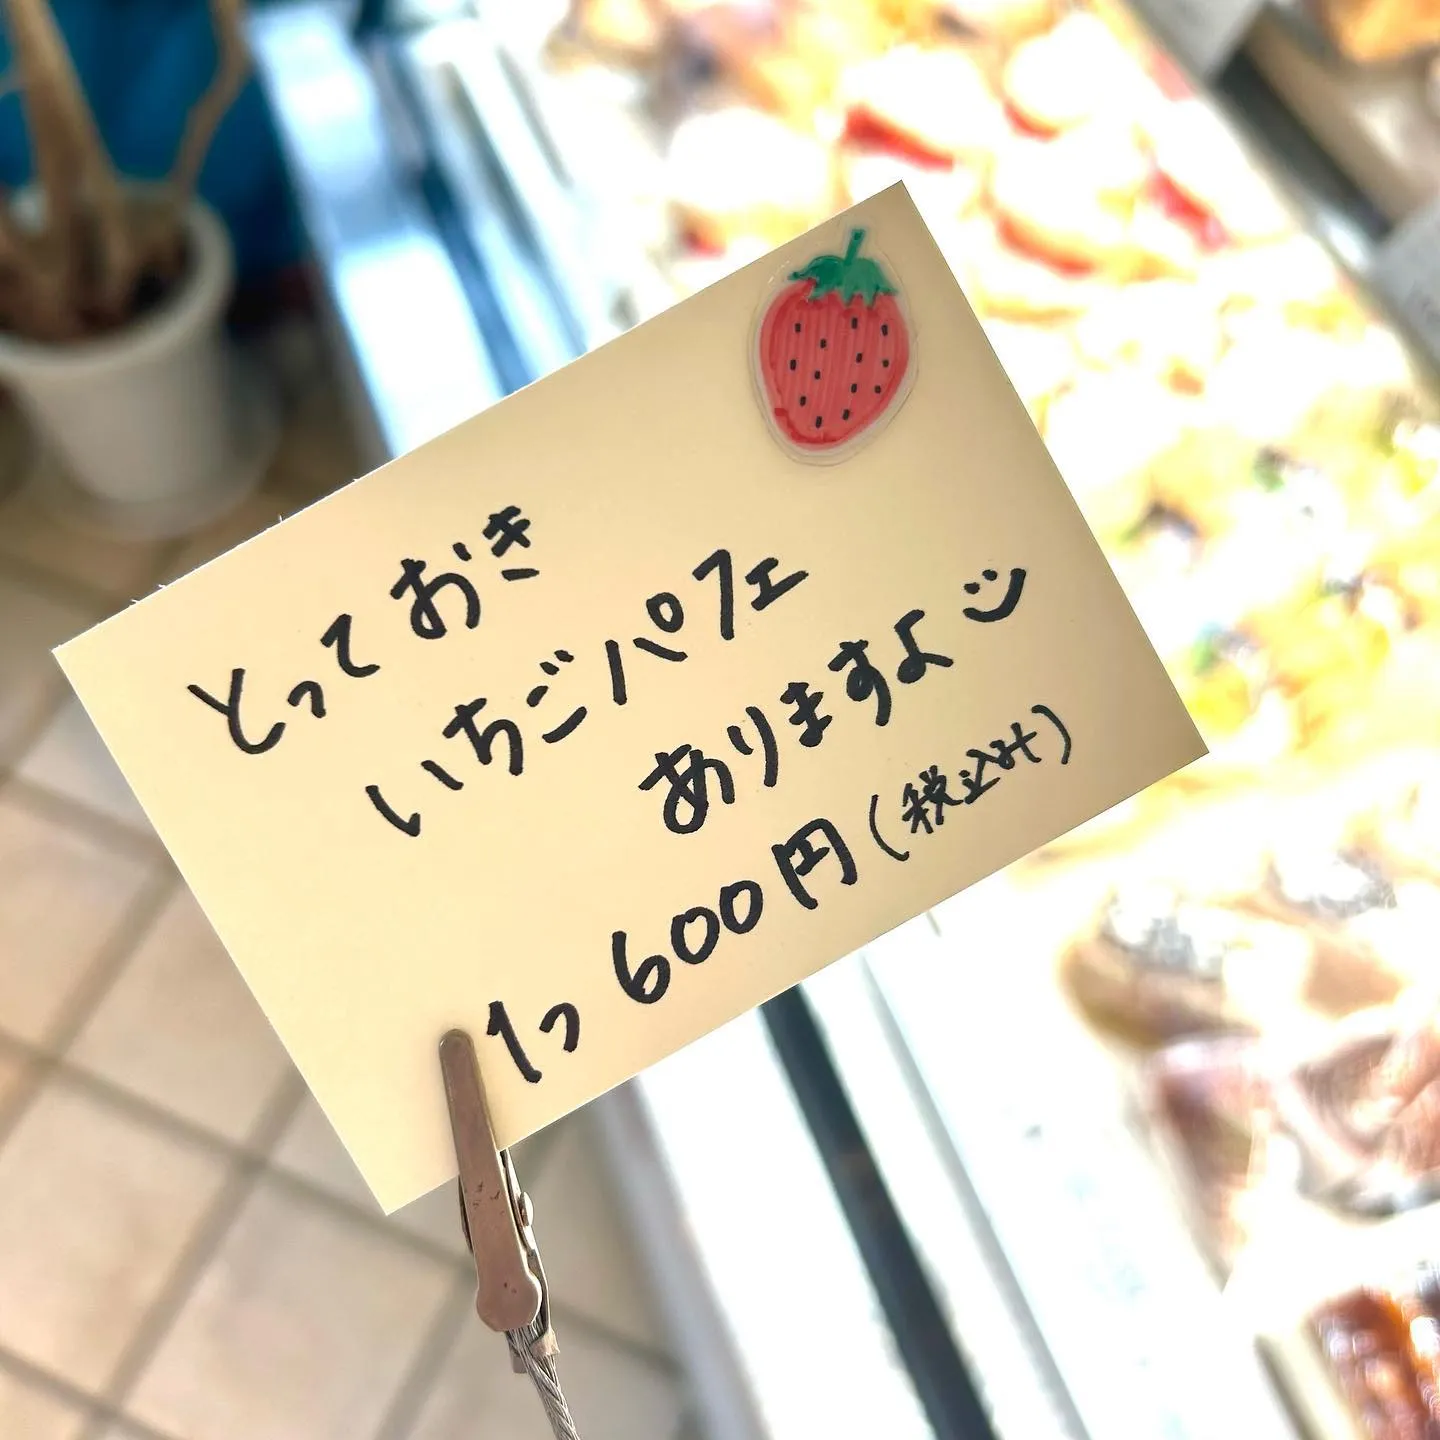 とっておき
いちごパフェ
ありますよ
1つ 600円(税込み)